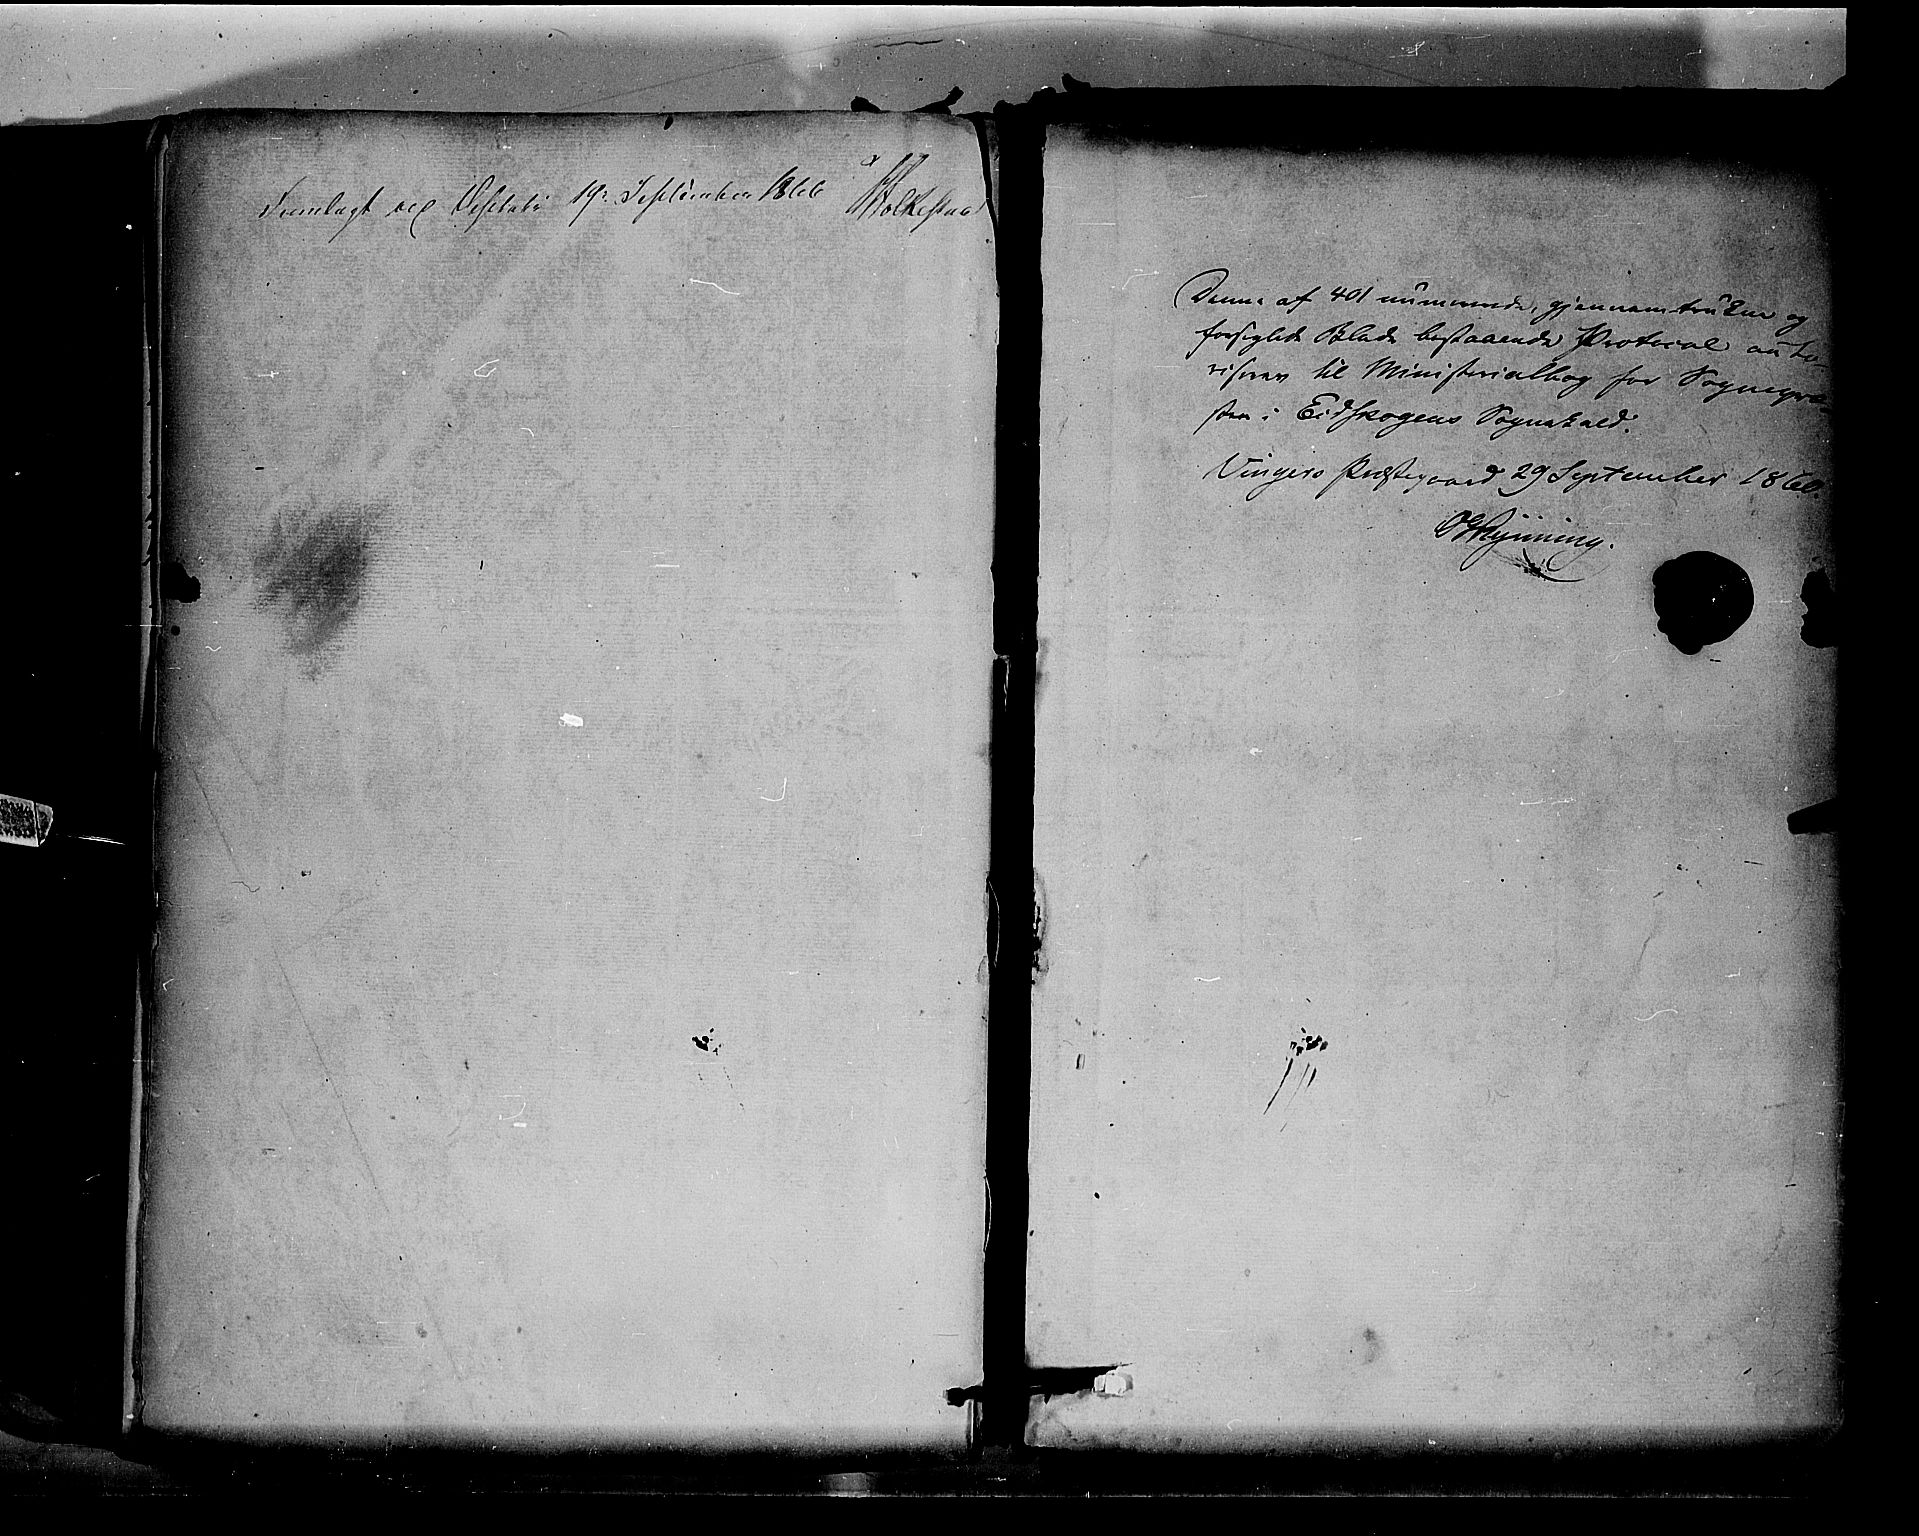 Fremlagt ved Visitats 19: September 1866 H Folkestad
Denne af 401 numererede, gjennemtrukne og
forseglede Blade bestaaende Protocol auto-
riseres til Ministerialbog for Sognepræ-
sten i Eidskogens Sognekald.
Vingers Præstegaard d 29 September 1860.